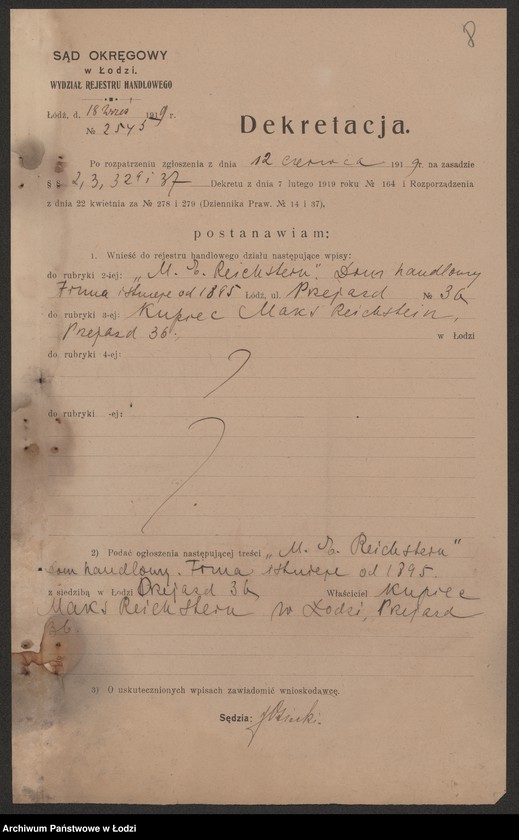 8
SĄD OKRĘGOWY
w Łodzi.
WYDZIAŁ REJESTRU HANDLOWEGO
Łódź, d. 18 Wrześ 1919 r.
№ 2545
Dekretacja.
Po rozpatrzeniu zgłoszenia z dnia 12 czerwca 1919 r. na zasadzie
§ 2, 3, 32 i 37 Dekretu z dnia 7 lutego 1919 roku № 164 i Rozporządzenia
z dnia 22 kwietnia za № 278 i 279 (Dziennika Praw. № 14 i 37),
postanawiam:
1. Wnieść do rejestru handlowego działu następujące wpisy:
do rubryki 2-ej: „M. Reichstein". Dom handlowy
Firma istnieje od 1895 Łódź, ul. Przejazd № 36
do rubryki 3-ej: Kupiec Maks Reichstein,
Przejazd 36. w Łodzi
do rubryki 4-ej:
do rubryki -ej:
2) Podać ogłoszenia następującej treści „M. Reichstein"
dom handlowy. Firma istnieje od 1895.
z siedzibą w Łodzi Przejazd 36 Właściciel Kupiec
Maks Reichstein w Łodzi, Przejazd
36
3) O uskutecznionych wpisach zawiadomić wnioskodawcę.
Sędzia:
Archiwum Państwowe w Łodzi